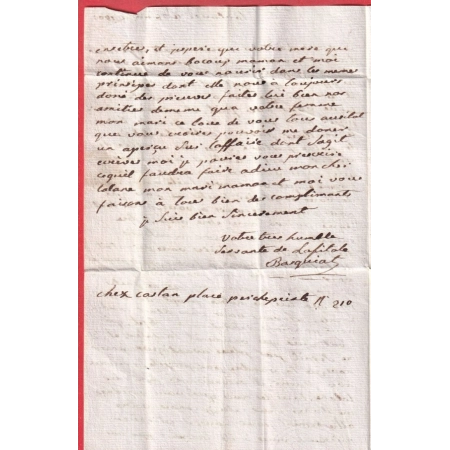 ensetres, et jespere que votre mere que
nous aimons bocoup maman et moi
continue de vous nourir dans les memes
prinsipes dont elle nous a toujours
doné des preuves faites lui bien nos
amities dememe que a votre femme
mon mari ce loue de vous tous ausitot
que vous pouvois me doner
un aperçu sur laffaire dont sagit
moi je pouries vous
cequil faudra faire adieu mon cher
mon mari maman et moi vous
faisons a tous bien des compliments
je suis bien sincerement
votre tres humble
servante de Lafitole
Barquiat
chez castan place n° 210